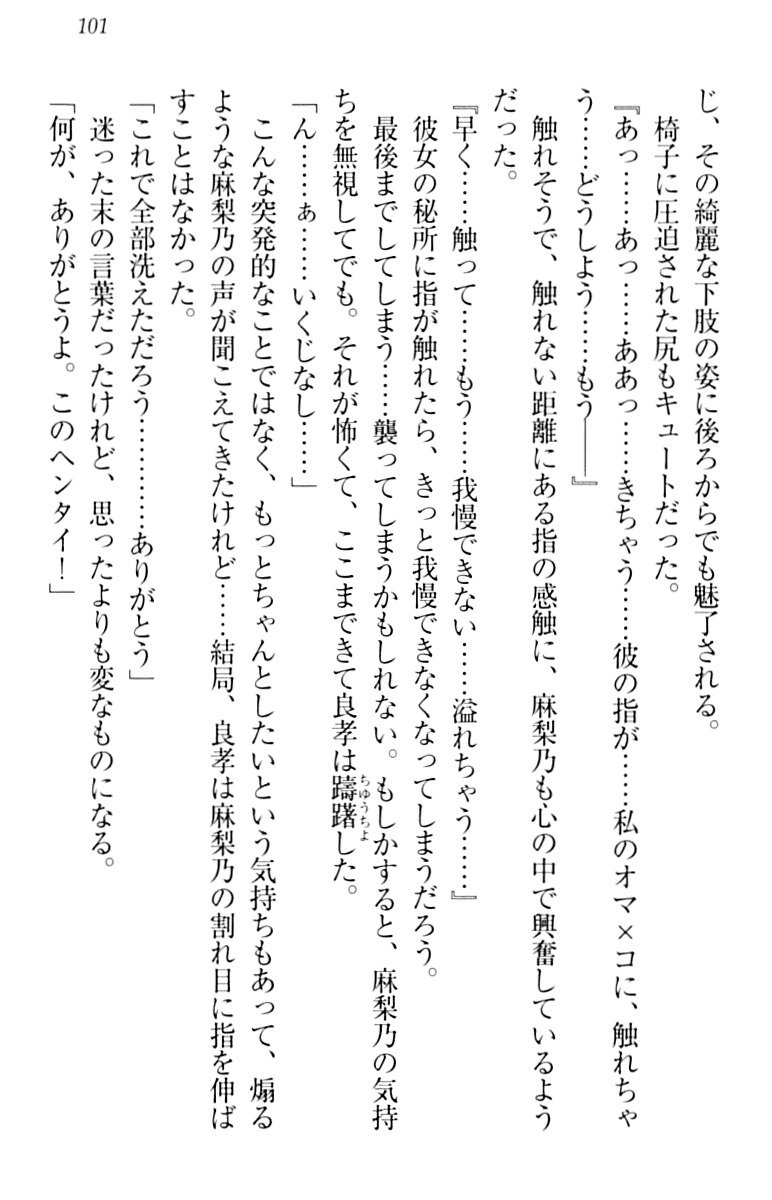 101
じ、その綺麗な下肢の姿に後ろからでも魅了される。
椅子に圧迫された尻もキュートだった。
『あっ……あっ……ああっ……きちゃう……彼の指が……私のオマ×コに、触れちゃ
う……どうしよう……もう――』
触れそうで、触れない距離にある指の感触に、麻梨乃も心の中で興奮しているよう
だった。
『早く……触って……もう……我慢できない……溢れちゃう……』
彼女の秘所に指が触れたら、きっと我慢できなくなってしまうだろう。
最後までしてしまう……襲ってしまうかもしれない。もしかすると、麻梨乃の気持
ちを無視してでも。それが怖くて、ここまできて良孝は躊躇した。
ちゅうちょ
「ん……ぁ……いくじなし……」
こんな突発的なことではなく、もっとちゃんとしたいという気持ちもあって、煽る
ような麻梨乃の声が聞こえてきたけれど……結局、良孝は麻梨乃の割れ目に指を伸ば
すことはなかった。
「これで全部洗えただろう…………ありがとう」
迷った末の言葉だったけれど、思ったよりも変なものになる。
「何が、ありがとうよ。このヘンタイ！」